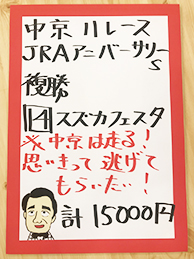 中京 11レース
JRAアニバーサリーS
複勝
14 スズカフェスタ
※中京は走る!
思いきって逃げて
もらいたい!
計 15000円